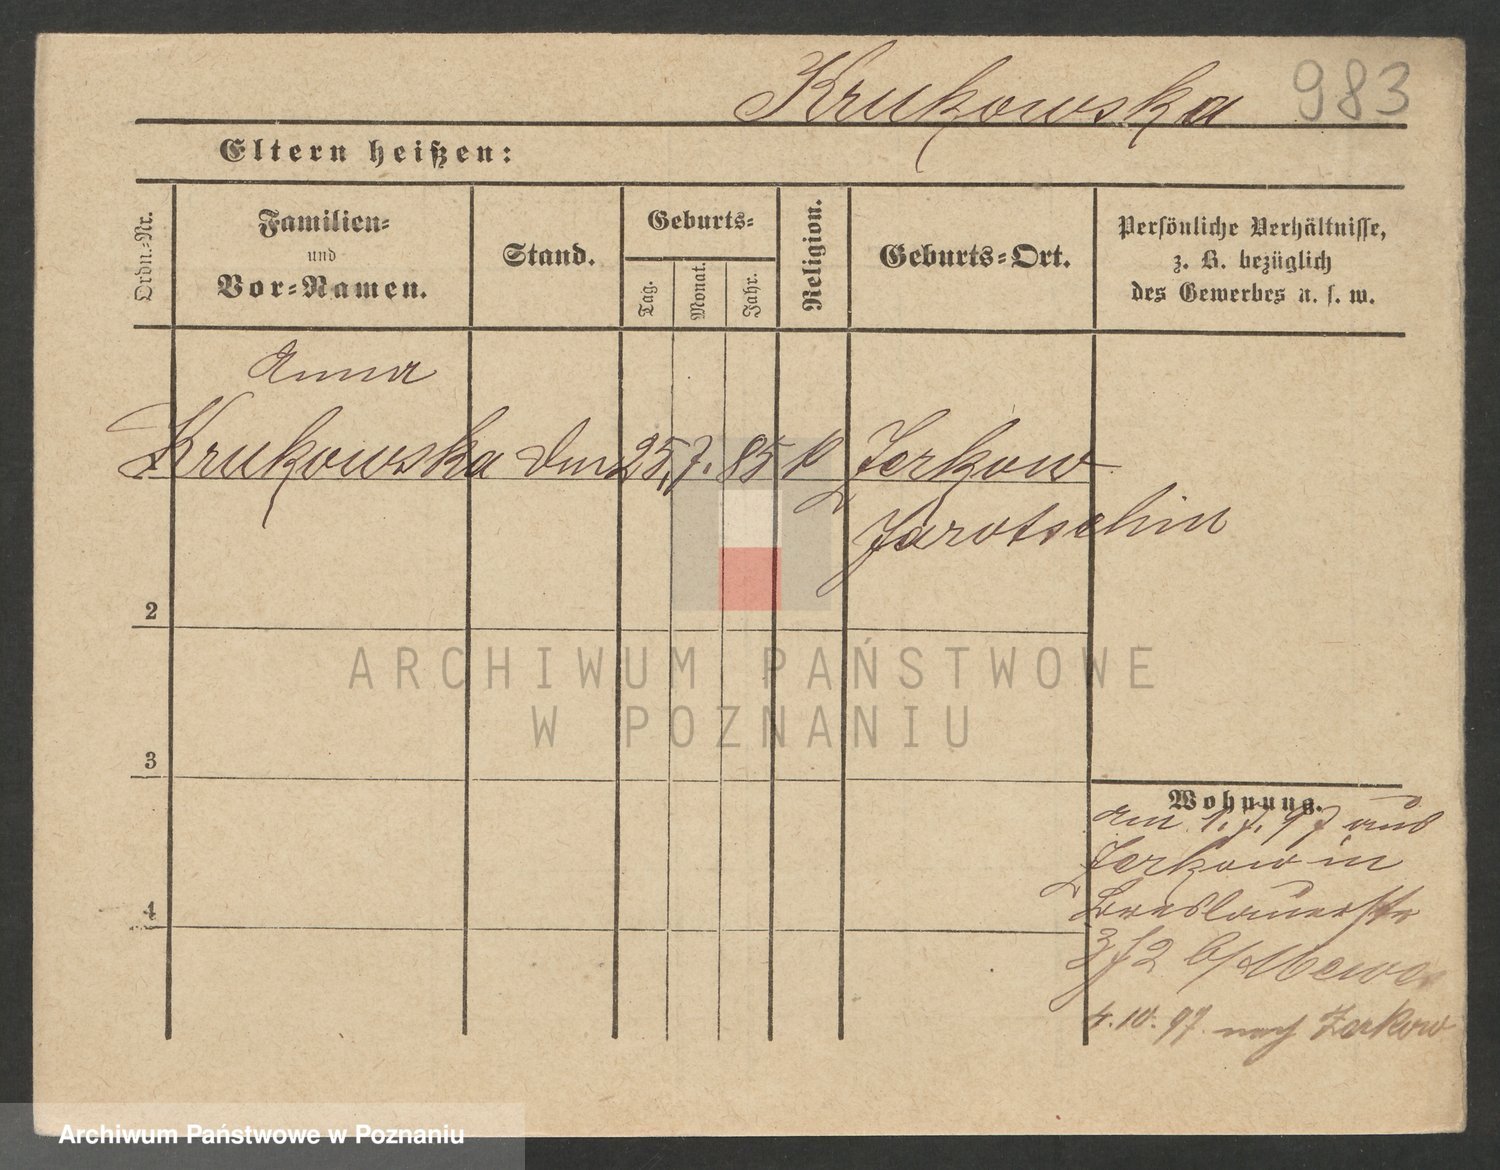 Krukowska 983
Eltern heißen:
Ordn.-Nr.
Familien-
und
Vor-Namen.
Stand.
Geburts-
Tag.
Monat.
Jahr.
Religion.
Geburts-Ort.
Persönliche Verhältnisse,
z. B. bezüglich
des Gewerbes u. s. w.
Anna
Krukowska 25. 7. 85 k Zerkow
Jarotschin
2
3
4
Wohnung.
am 1. 7. 97 aus
Zerkow in
Breslauerstr
b/
4. 10. 97 nach Zerkow
ARCHIWUM PAŃSTWOWE
W POZNANIU
Archiwum Państwowe w Poznaniu